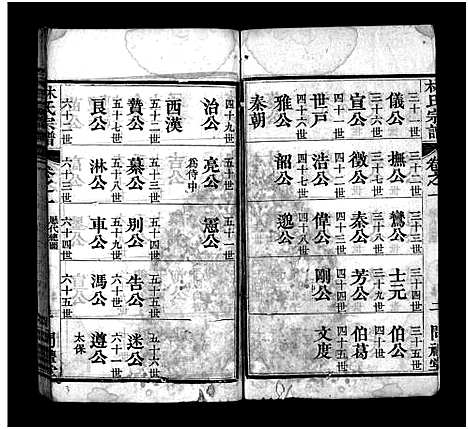 林氏宗譜 卷之一
三十一世 三十二世 三十三世 三十四世 三十五世
儀公 撫公 鸞公 士元 伯公
三十六世 三十七世 三十八世 三十九世 四十世
宣公 徵公 秦公 芳公 伯葛
四十一世 四十二世 四十三世 四十四世 四十五世
世戸 浩公 偉公 剛公 文度
四十六世 四十七世 四十八世
雅公 韶公 邈公
秦朝
四十九世 五十世 五十一世
治公 亮公 爲侍中 憲公
西漢
五十二世 五十三世 五十四世 五十五世 五十六世
贊公 綦公 別公 告公 迷公
五十七世 五十八世 五十九世 六十世 六十一世
艮公 淋公 車公 馮公 遵公 太保
六十二世 六十三世 六十四世 六十五世
林氏宗譜 卷之一 歷代總圖